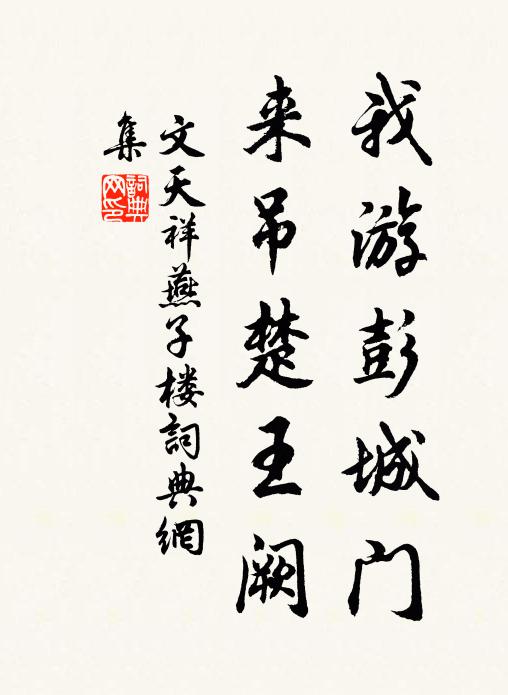 我游彭城门
来吊楚王阙
文天祥燕子楼詞典網
集
詞典网印